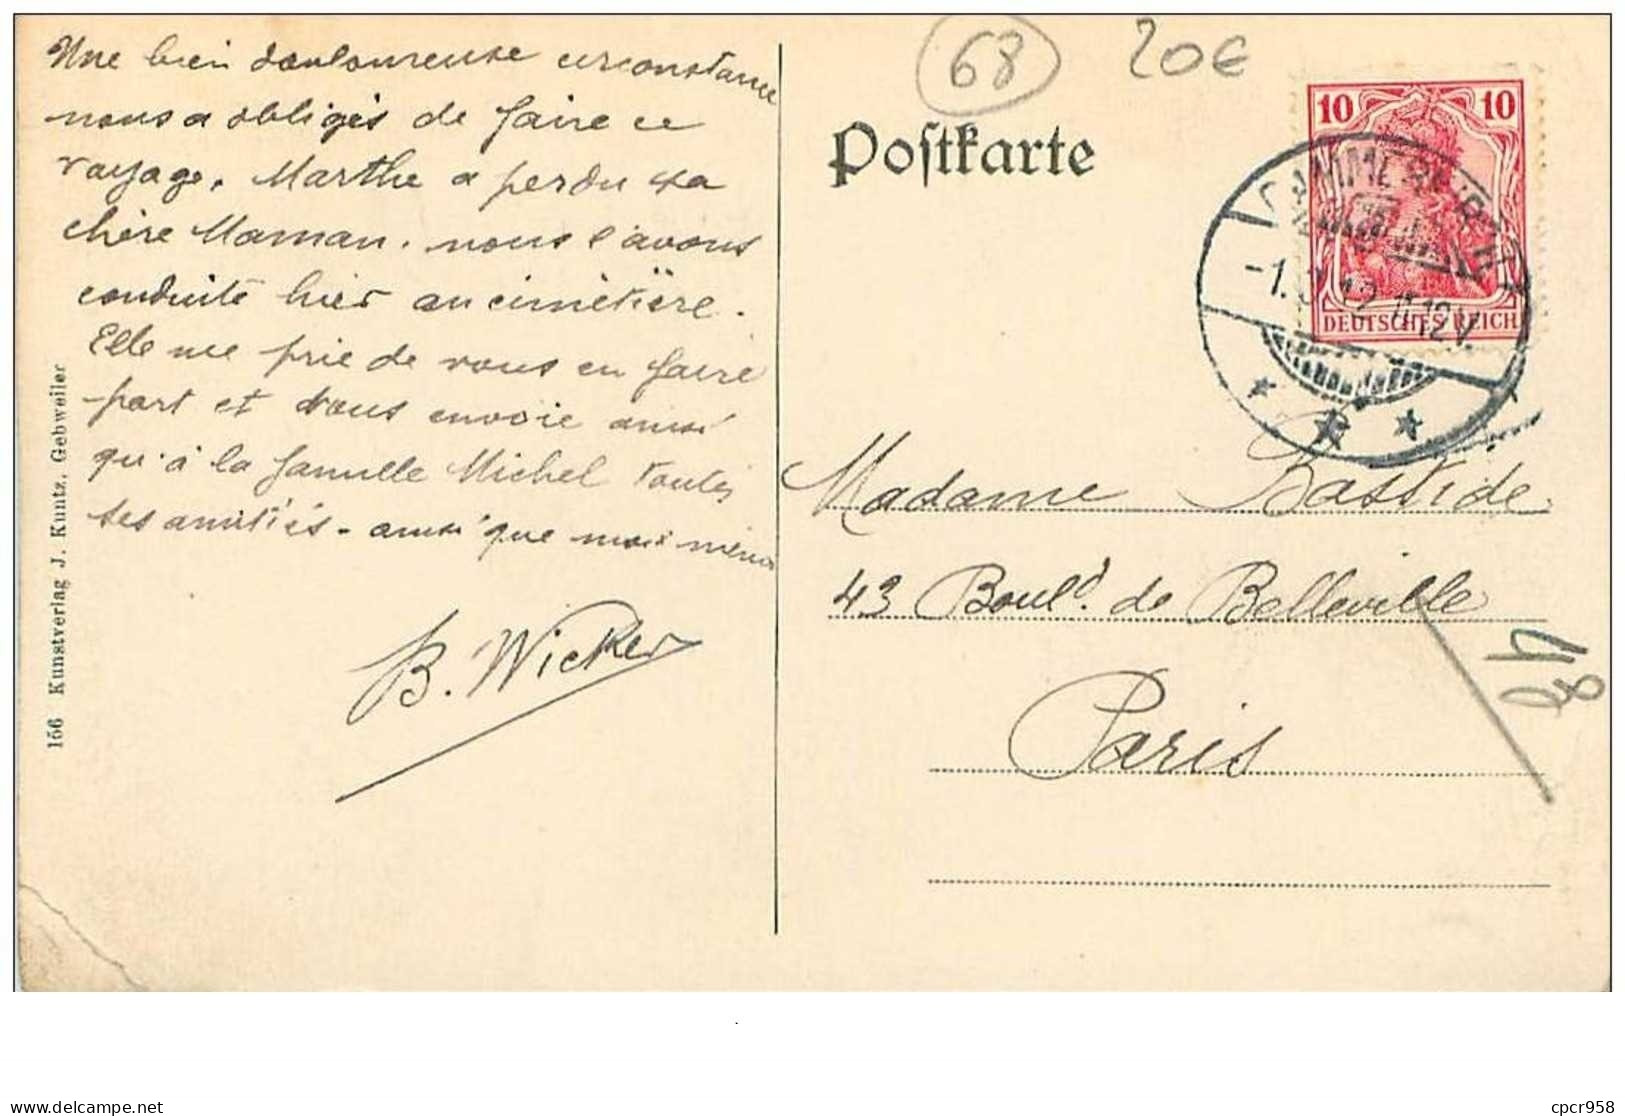 Une bien douloureuse circonstance
nous a obligés de faire ce
voyage. Marthe a perdu sa
chère Maman. nous l'avons
conduite hier au cimetière.
Elle me prie de vous en faire
part et vous envoie ainsi
qu'à la famille Michel toutes
ses amitiés - ainsi que moi même
B. Wicker
156 Kunstverlag J. Kuntz, Gebweiler
68
20€
Postkarte
10 10
DEUTSCHES REICH
Madame Bastide
43 Boul.d de Belleville
Paris
48
cpcr958